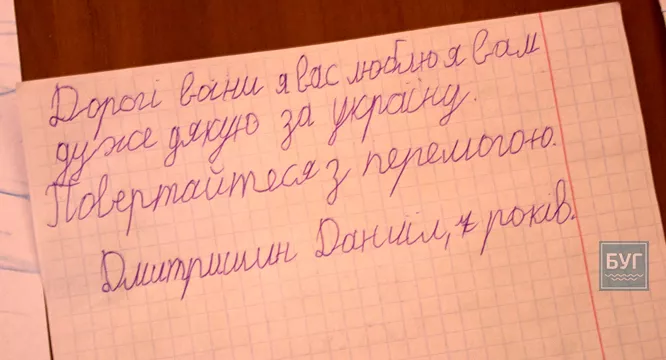 Дорогі воіни я вас люблю я вам
дуже дякую за україну.
Повертайтеся з перемогою.
Дмитришин Даниїл, 7 років.
БУГ